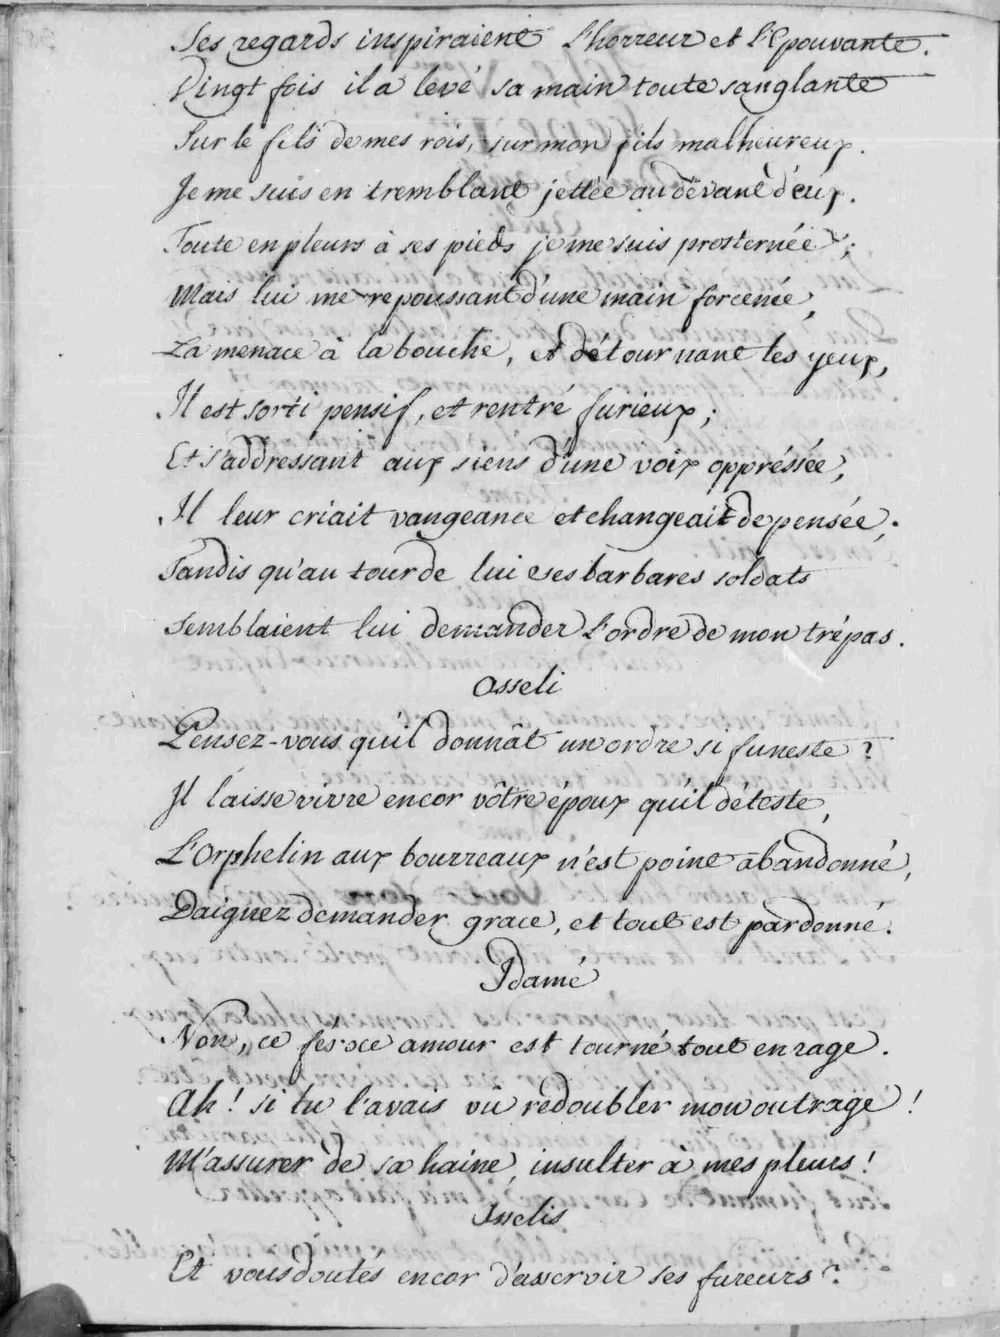 Ses regards inspiraient L'horreur et L'Epouvante.
Vingt fois il a levé sa main toute sanglante
Sur le fils de mes rois, sur mon fils malheureux.
Je me suis en tremblant jettée au devant d'eux.
Toute en pleurs à ses pieds je me suis prosternée;
Mais lui me repoussant d'une main forcenée,
La menace à la bouche, et détournant les yeux,
Il est sorti pensif, et rentré furieux;
Et s'addressant aux siens d'une voix oppréssée,
Il leur criait vangeance et changeait de pensée;
Tandis qu'au tour de lui ses barbares soldats
Semblaient lui demander L'ordre de mon trépas.
Osseli
Pensez-vous qu'il donnât un ordre si funeste?
Il laisse vivre encor vôtre époux qu'il déteste,
L'Orphelin aux bourreaux n'est point abandonné,
Daignez demander grace, et tout est pardonné.
Idamé
Non, ce féroce amour est tourné tout en rage.
Ah! si tu l'avais vû redoubler mon outrage!
M'assurer de sa haine, insulter à mes pleurs!
Asselis
Et vous doutés encor d'asservir ses fureurs?